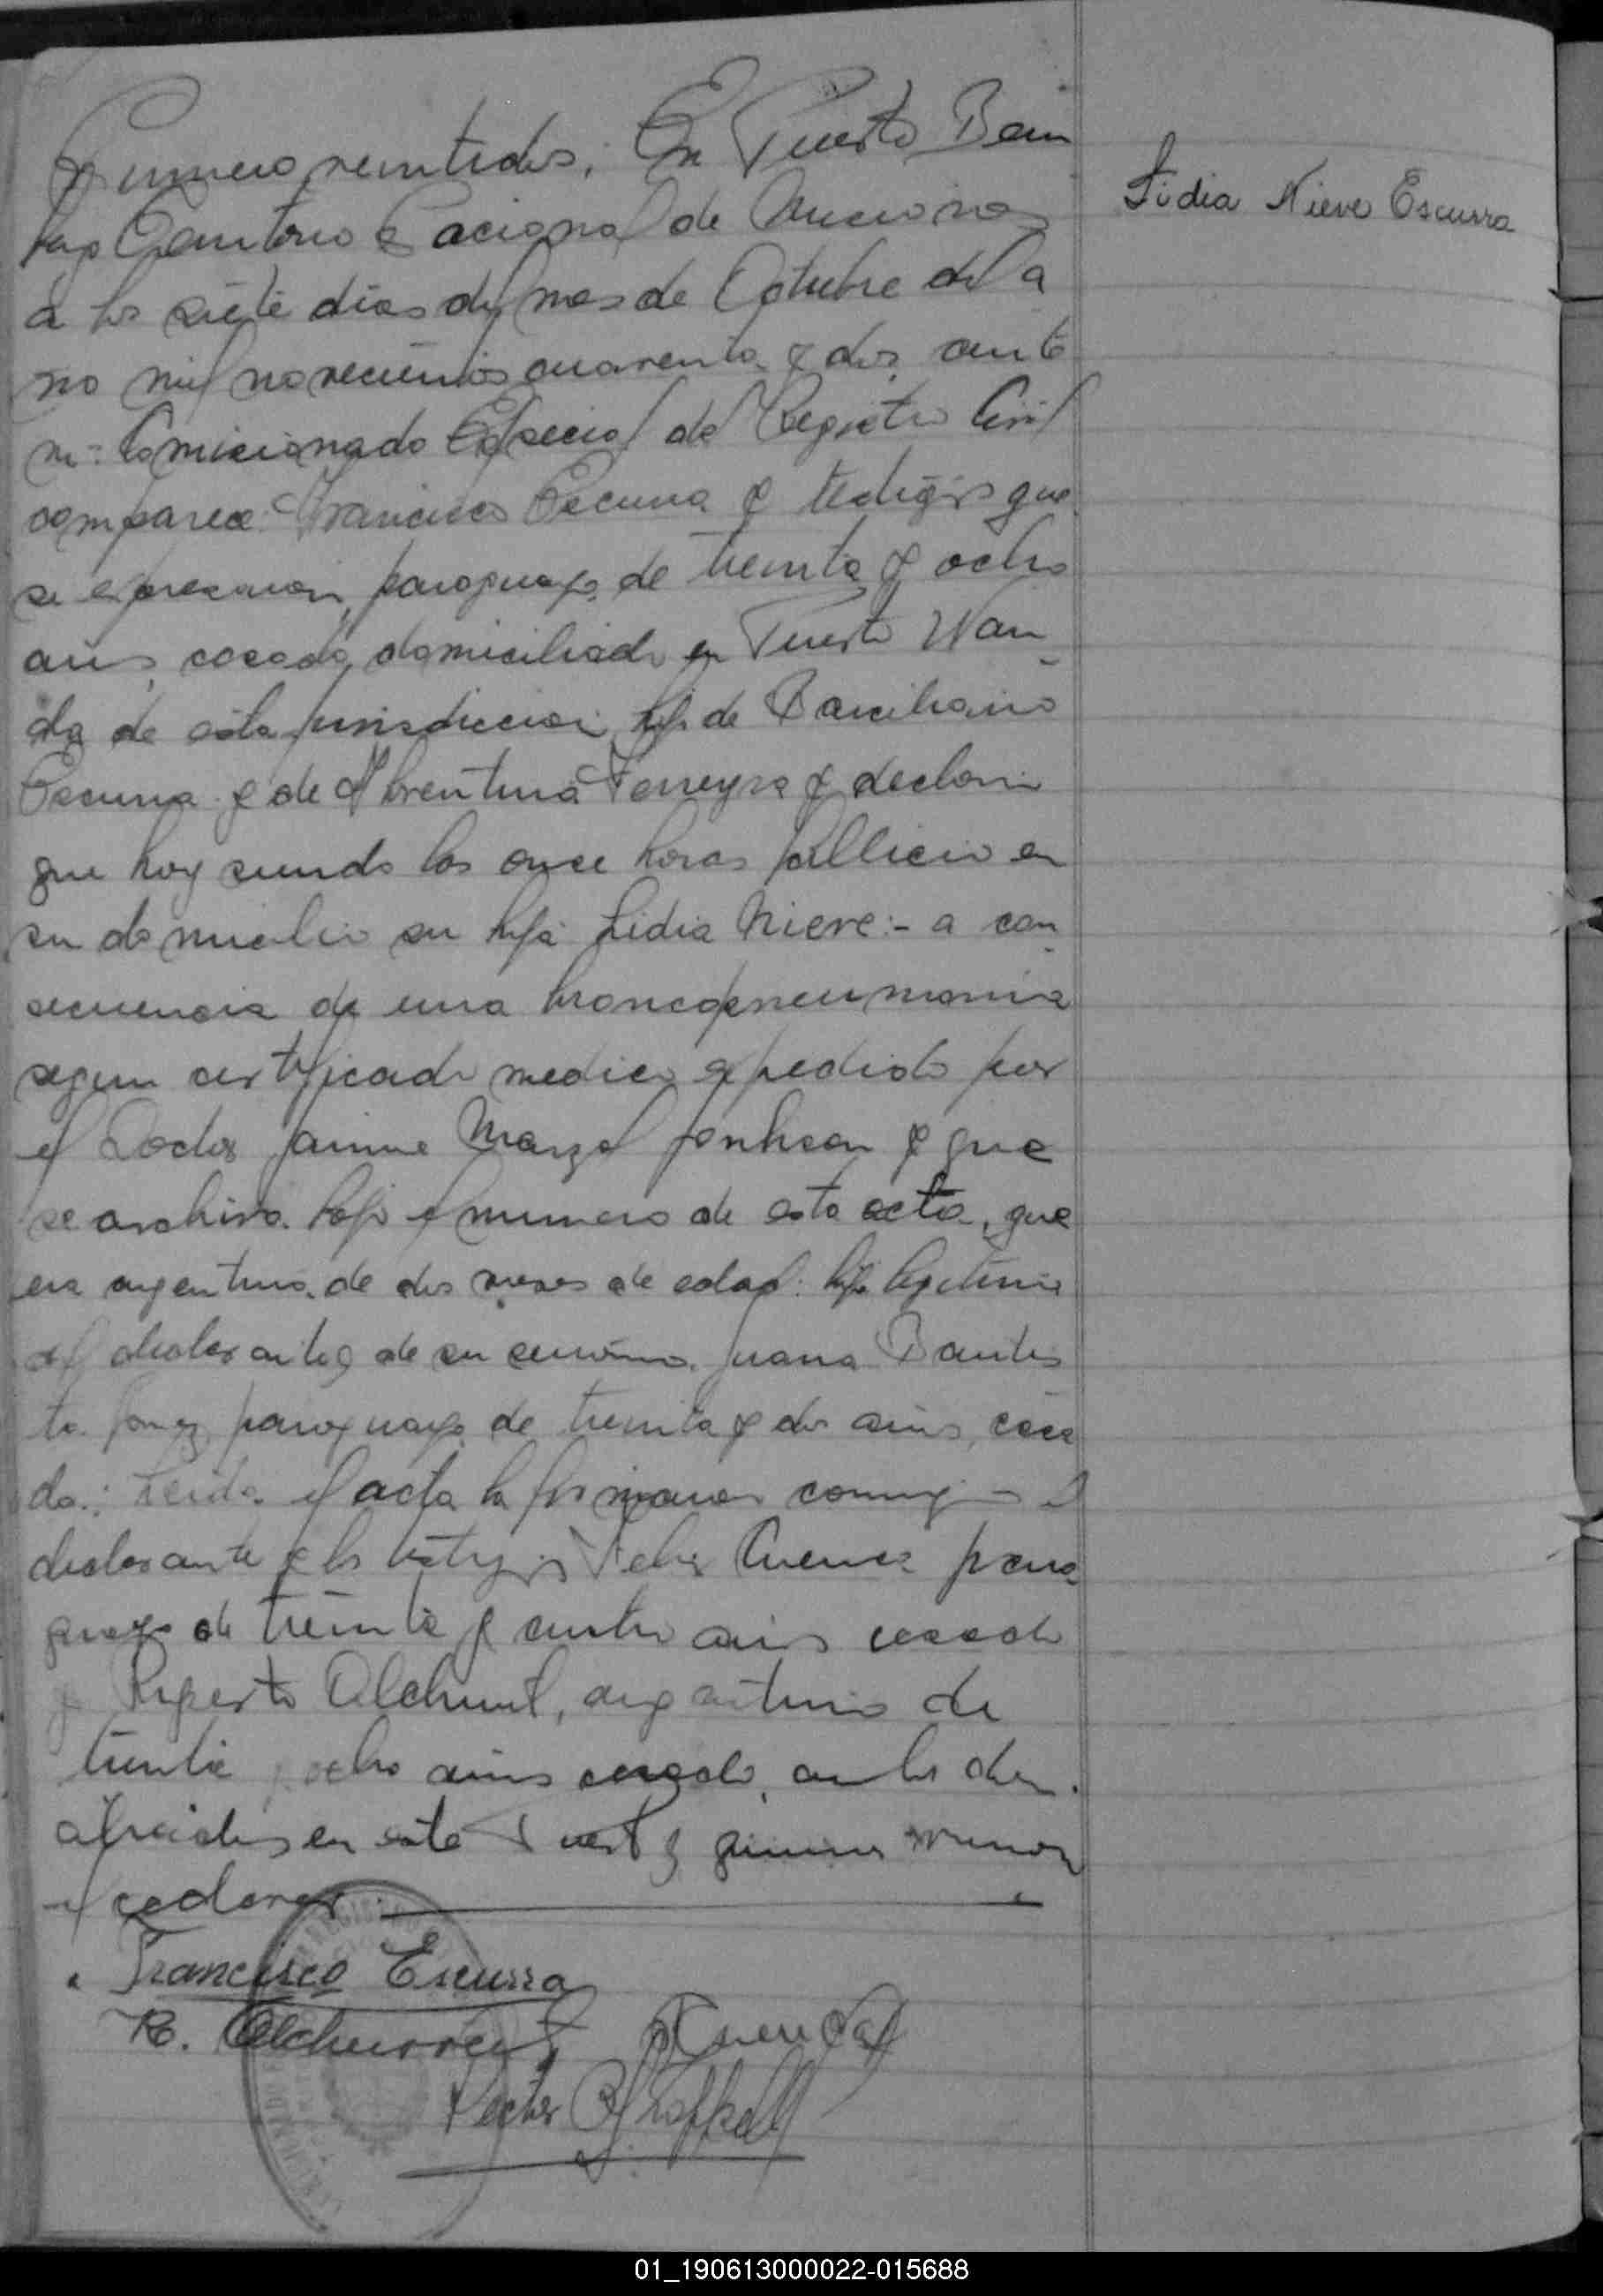 Numero veintidos; En Puerto Bem
berg Territorio Nacional de Misiones
a los siete dias del mes de Octubre del a
no mil novecientos cuarenta y dos, ante
mi: Comicionado Especial del Registro Civil
comparece: Francisco Escurra y testigos que
se expresaran, paraguayo, de treinta y ocho
años, casado, domiciliado en Puerto Wan
da de esta jurisdiccion, hijo de Marciliano
Escurra y de Florentina Ferreyra y declaro:
que hoy siendo las once horas fallecio en
su domicilio su hija Lidia Nieve:- a con
secuencia de una broncopneumonia
segun certificado medico expedido por
el Doctor Jaime Marzal y que
se archiva bajo el numero de esta acta, que
era argentina, de dos meses de edad: hija legitima
del declarante y de su senóra. Juana Bautis
ta paraguaya de treinta y dos años, casa
da.: Leida el acta la firmaron conmigo el
declarante y los testigos Felix Cuenca para
guayo de treinta y cuatro años casado
y Ruperto Alchurrut, argentino de
treinta y ocho años casado, ambos do
miciliados en este Puerto y quienes vieron
el cadaver.
Francisco Escurra
R. Alchurrut FCuenca
Hector
Lidia Nieve Escurra
01_190613000022-015688